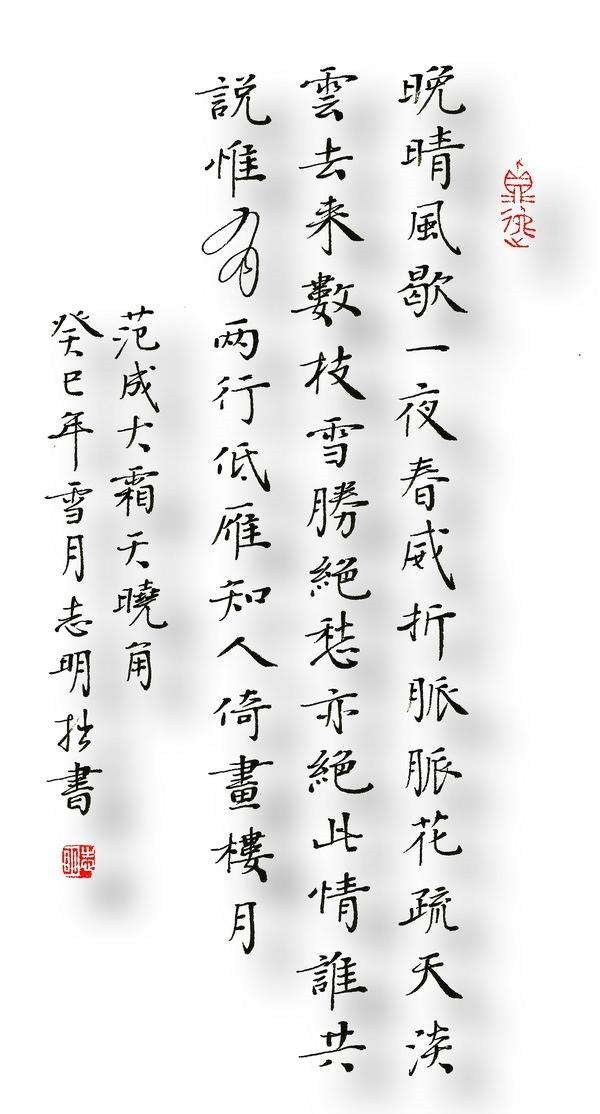 晚晴風歇一夜春威折脈脈花疏天淡
雲去来數枝雪勝絕愁亦絕此情誰共
説惟有兩行低雁知人倚畫樓月
范成大霜天曉角
癸巳年雪月志明拙書
志明